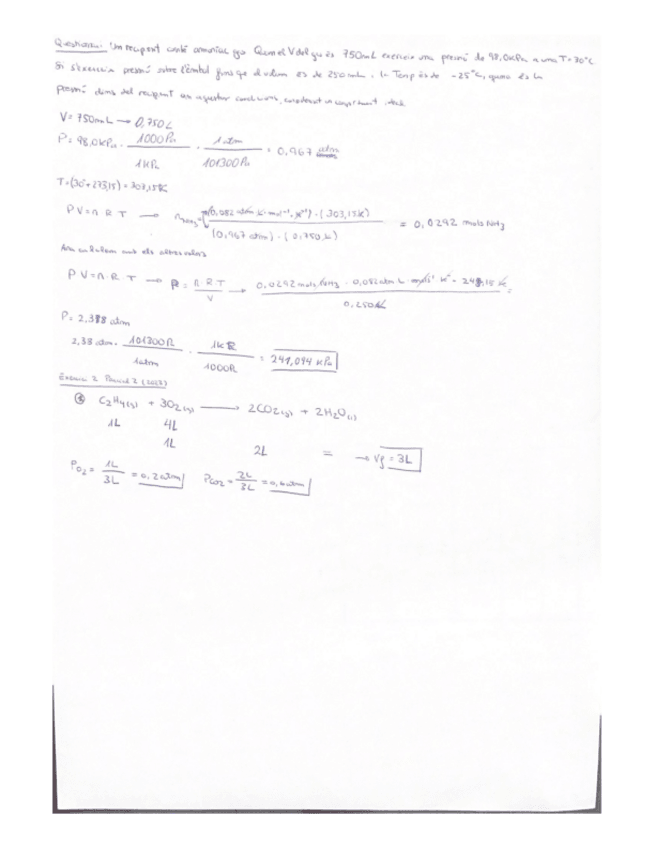 Qüestionari: Un recipient conté amoniac gas. Quan el V del gas és 750mL exerceix una pressió de 98,0kPa a una T=30°C
Si s'exerceix pressió sobre l'èmbol fins que el volum és de 250mL, la Temp és de -25°C, quina és la
pressió dins del recipient en aquestes condicions, considerant un comportament ideal
V= 750mL → 0,750L
P= 98,0KPa · 1000Pa / 1KPa · 1atm / 101300Pa = 0,967 atm
T=(30+273,15)=303,15K
PV=n·R·T → (0,082 atm · mol⁻¹ · K⁻¹)·(303,15K) / (0,967 atm)·(0,750L) = 0,0292 mols NH3
Ara calculem amb els altres valors
PV=n·R·T → P= n·R·T / V → 0,0292 mols NH3 · 0,082 atm L mol⁻¹ K⁻¹ · 248,15 K / 0,250L =
P= 2,388 atm
2,38 atm · 101300Pa / 1atm · 1KPa / 1000Pa = 241,094 KPa
Exercici 2 Parcial 2 (2023)
C2H4(g) + 3O2(g) → 2CO2(g) + 2H2O(l)
1L 4L
1L 2L = → Vf = 3L
PO2 = 1L / 3L = 0,3atm PCO2 = 2L / 3L = 0,6atm